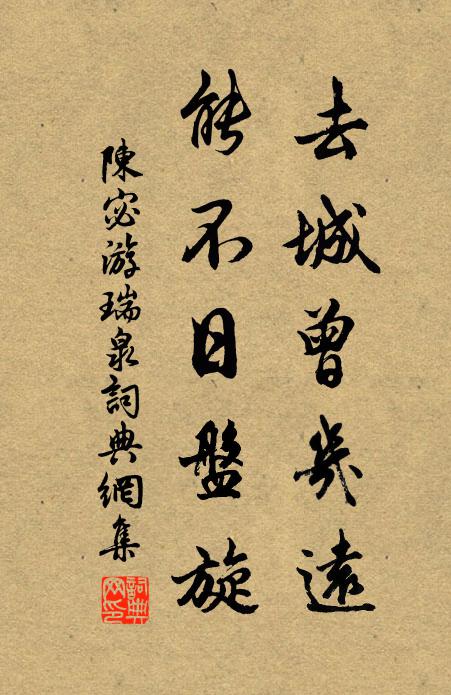 去城曾幾遠
能不日盤旋
陳宓游瑞泉詞典網集
詞典网印